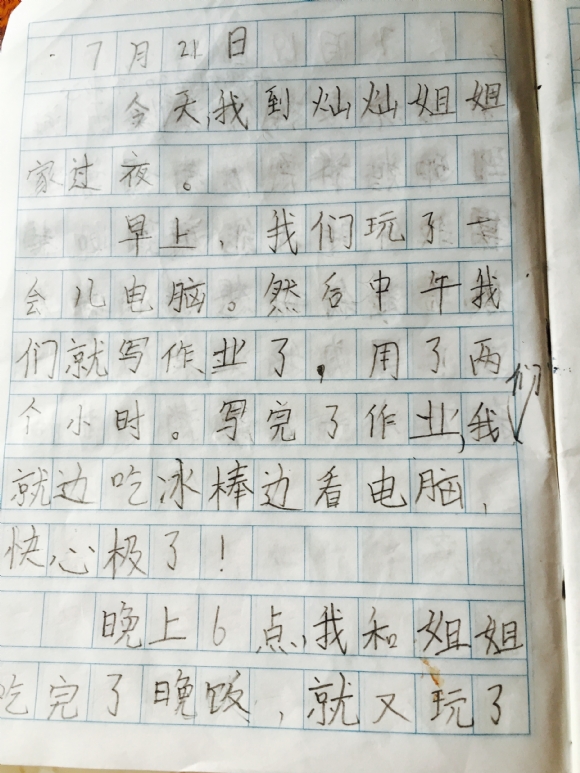 7月21日
今天,我到灿灿姐姐
家过夜。
早上,我们玩了一
会儿电脑。然后中午我
们就写作业了,用了两
个小时。写完了作业,我们
就边吃冰棒边看电脑,
快心极了!
晚上6点,我和姐姐
吃完了晚饭,就又玩了